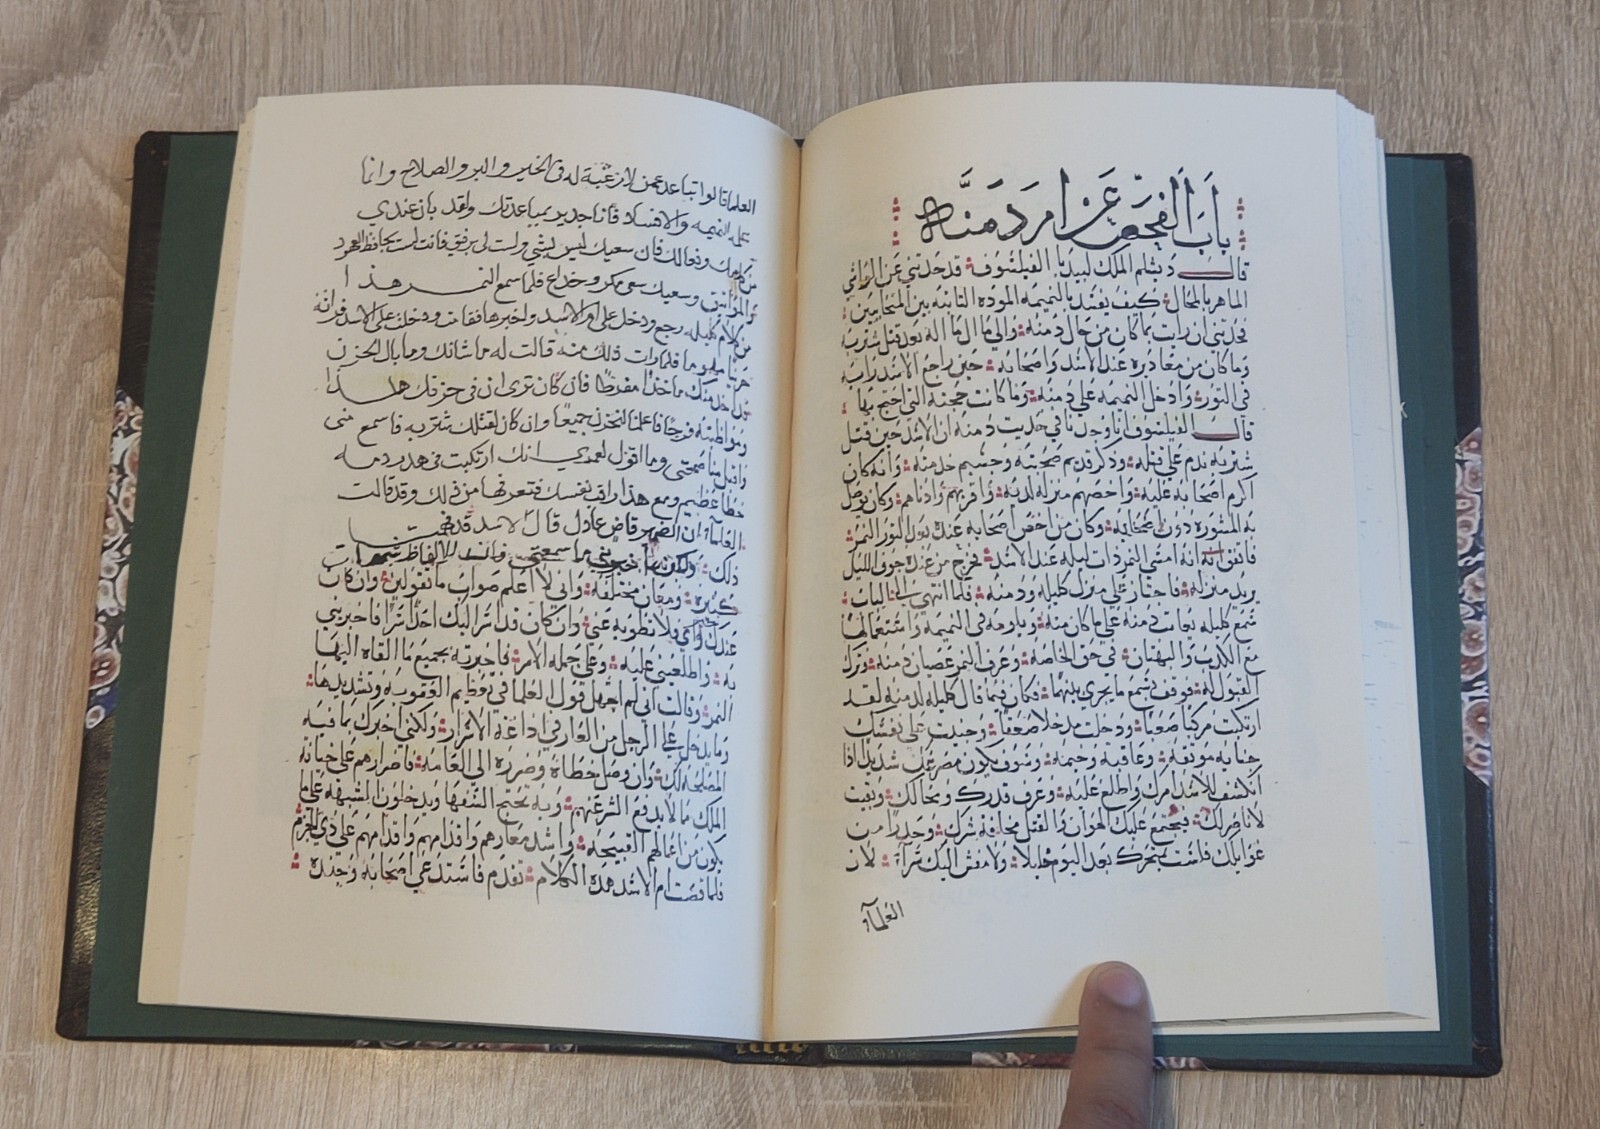 باب الفحص عن امر دمنة
قال دبشلم الملك لبيدبا الفيلسوف قد حدثتني عن الواشي
الماهر بالمحال كيف يفسد بالنميمة المودة الثابتة بين المتحابين
فحدثني ان رايت بما كان من حال دمنة والي ما ال ماله بعد قتل شتربه
وما كان من معاذيره عند الاسد واصحابه حين راجع الاسد رايه
في الثور وادخل النميمه علي دمنه وما كانت حجته التي احتج بها
قال الفيلسوف انا وجدنا في حديث دمنه ان الاسد حين قتل
شتربه ندم علي قتله وذكر قديم صحبته وجسيم خدمته وانه كان
اكرم اصحابه عليه واخصهم منزلة لديه واقربهم وادناهم وكان يوصل
به المشوره دون اصحابه وكان من اخص اصحابه عنده بعد الثور النمر
فاتفق انه امسي النمر ذات ليله عند الاسد فخرج من عنده جوف الليل
يريد منزله فاجتاز علي منزل كليله ودمنه فلما انتهي الي الباب
سمع كليله يعاتب دمنه علي ما كان منه ويلومه في النميمه واستعمالها
مع الكذب والبهتان في حق الخاصه وعرف النمر عصيان دمنه وترك
القبول له فوقف يسمع ما يجري بينهما فكان فيما قال كليله لدمنه لقد
ارتكبت مركبا صعبا ودخلت مدخلا ضيقا وجنيت علي نفسك
جنايه موبقه وعاقبه وخيمه وسوف يكون مصرعك شديد اذا
انكشف للاسد امرك واطلع عليه وعرف غدرك ومحالك وبقيت
لا ناصر لك فيجتمع عليك الهوان والقتل مخافة شرك وحذرا من
غوايلك فلست بمتخذك بعد اليوم خليلا ولا مفش اليك سرا لان
العلمآء
العلما قالوا تباعد عمن لا رغبة له في الخير والبر والصلاح وانما
علي النميمه والافساد فانا جدير بمباعدتك ولقد بان عندي
كلامك وفعالك فان سعيك ليس بشي ولست لي برفيق فانت لست بحافظ العهد
والمواثيق وسعيك سعي مكر وخداع فلما سمع النمر هذا
من كلام كليله رجع ودخل علي ام الاسد واخبرها فقامت ودخلت علي الاسد فراته
حزينا مهموما فلما رات ذلك منه قالت له ما شانك وما بال الحزن
قد اخذ منك ماخذا مفرطا فان كان تري ان في حزنك هذا
ومواظبته فرجا فاعلمنا لنحزن جميعا وان كان لقتلك شتربه فاسمع مني
واقبل نصيحتي وما اقول لعمدي انك ارتكبت في هدر دمه
خطا عظيم ومع هذا راقب نفسك فتعرفها من ذلك وقد قالت
العلمآء ان الضمير قاض عادل قال الاسد قد فهمت
ذلك ولكن اخبريني ما سمعتي فان الالفاظ شبهات
كثيره ومعان مختلفه واني لا اعلم صواب ما تقولين وان كان
عندك راي فلا تطويه عني وان كان قد اسر اليك احد سرا فاخبريني
به واطلعيني عليه وعلي جملة الامر فاخبرته بجميع ما القاه اليها
النمر وقالت اني لم اجهل قول العلما في تعظيم العقوبه وتشديدها
وما يدخل علي الرجل من العار في اذاعة الاسرار ولكني اخبرك بما فيه
المصلحه لك وان وصل خطاه وضرره الي العامه فاصرارهم علي خيانة
الملك مما لا يدفع الشر عنهم وبه تحتج السفها ويدخلون الشبهه علي ما
يكون من اعمالهم القبيحه واشد معارهم واقدامهم واقدامهم علي ذي الحزم
فلما قضت ام الاسد هذه الكلام تقدم فاستدعي اصحابه وجنده